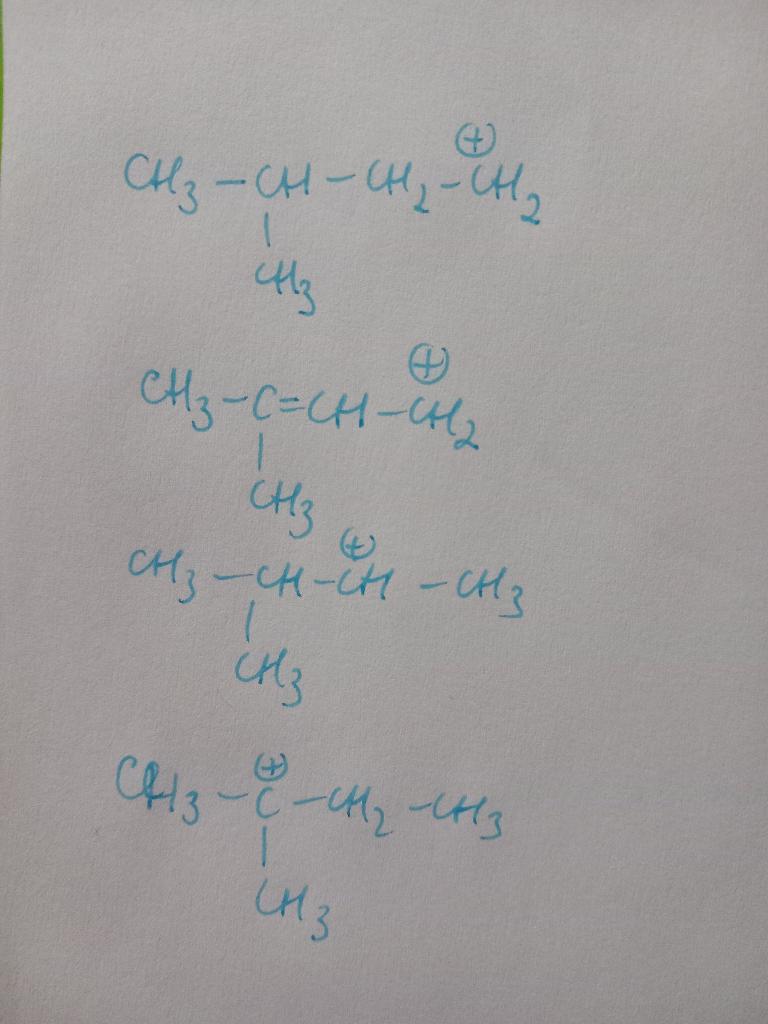 ⊕
CH₃ – CH – CH₂ – CH₂
|
CH₃
⊕
CH₃ – C = CH – CH₂
|
CH₃
⊕
CH₃ – CH – CH – CH₃
|
CH₃
⊕
CH₃ – C – CH₂ – CH₃
|
CH₃